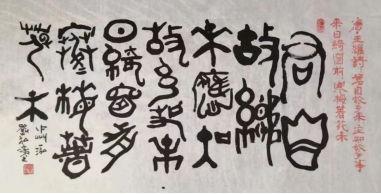 唐王維詩 君自故鄉來 應知故鄉事
來日綺窗前 寒梅著花未
君自
故鄉
來應知
故鄉事來
日綺窗前
寒梅著
花未